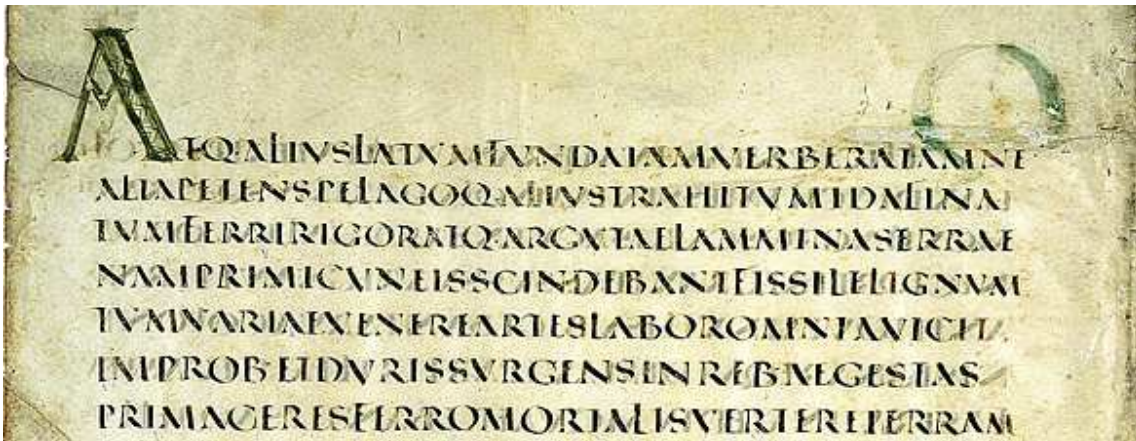 ATQ·ALIVSLATVMFVNDAIAMVERBERATAMNE
ALTAPETENSPELAGOQ·ALIVSTRAHITVMIDALINA
TVMFERRIRIGORATQ·ARGVTAELAMMINASERRAE
NAMPRIMICVNEISSCINDEBANTFISSILELIGNVM
TVMVARIAEVENEREARTESLABOROMNIAVICIT
IMPROB·ETDVRISSVRGENSINREB·EGESTAS
PRIMACERESFERROMORTALISVERTERETERRAM